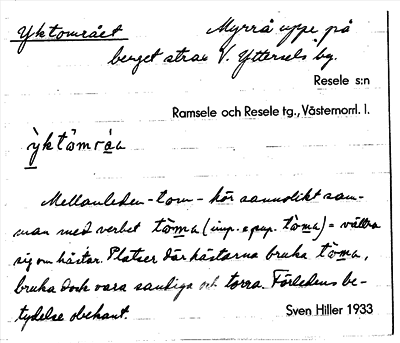 Yktområet
Myrrå uppe på
berget strax V. Yttersels by.
Resele s:n
Ramsele och Resele tg., Västernorrl. l.
ỳktômráa
Mellanleden -tom- hör sannolikt sam-
man med verbet tôma (imp. o. pup. tòma) = vältra
sig om hästar. Platser där hästarna bruka tôma,
bruka dock vara sandiga och torra. Förledens be-
tydelse obekant.
Sven Hiller 1933